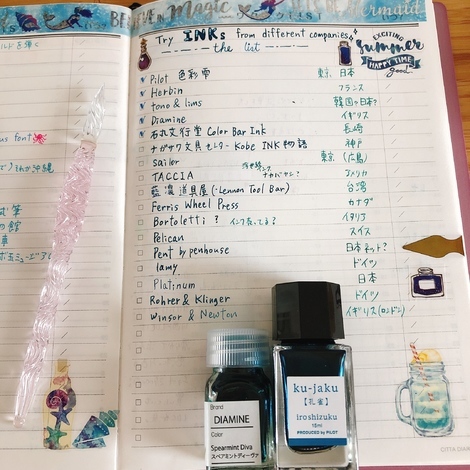 BELIEVE in Magic
Mermaid
Try INKs from different companies
the list
EXCITING
Summer
HAPPY TIME
good
Pilot 色彩雫 東京 日本
Herbin フランス
tono & lims 韓国&日本?
Diamine イギリス
石丸文行堂 Color Bar Ink 長崎
ナガサワ文具センター Kobe INK 物語 神戸
Sailor 東京 (広島)
TACCIA アメリカ
藍濃道具屋 (Lennon Tool Bar) 台湾
Ferris Wheel Press カナダ
Bortoletti? インク売ってる? イタリア
Pelican スイス
Pent by penhouse 日本ネット?
lamy ドイツ
Platinum 日本
Rohrer & Klinger ドイツ
Winsor & Newton イギリス(ロンドン)
us font
沖縄
筆
の館
Brand
DIAMINE
Color
Spearmint Diva
スペアミントディーヴァ
ku-jaku
【孔雀】
iroshizuku
15ml
PRODUCED by PILOT
CITTA DIA